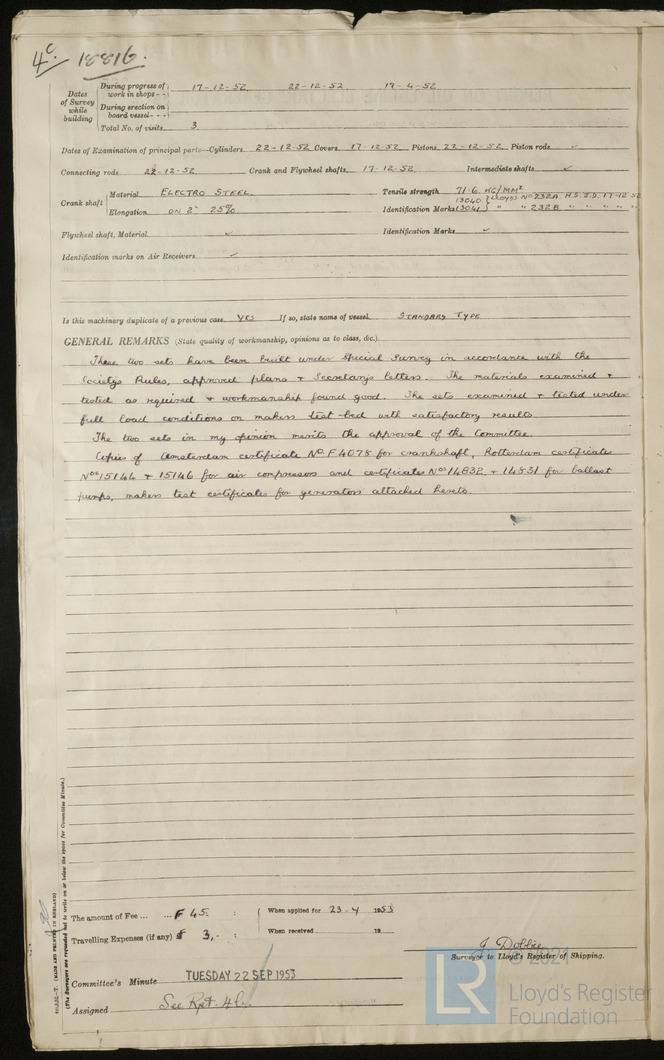 4c. 18816.
Dates of Survey while building
During progress of work in shops - - 17-12-52 22-12-52 17-4-52
During erection on board vessel - - -
Total No. of visits 3
Dates of Examination of principal parts—Cylinders 22-12-52 Covers 17-12-52 Pistons 22-12-52 Piston rods ✓
Connecting rods 22-12-52 Crank and Flywheel shafts 17-12-52 Intermediate shafts ✓
Crank shaft { Material ELECTRO STEEL Tensile strength 71·6 KG/MM²
Elongation ON 2" 25% Identification Marks 13040 } Lloyds No 232A H.S.J.D. 17-12-52
13041 } " " 232B " " " " "
Flywheel shaft, Material ✓ Identification Marks ✓
Identification marks on Air Receivers ✓
Is this machinery duplicate of a previous case YES If so, state name of vessel STANDARD TYPE
GENERAL REMARKS (State quality of workmanship, opinions as to class, &c.)
These two sets have been built under Special Survey in accordance with the
Society's Rules, approved plans + Secretary's letters. The materials examined +
tested as required + workmanship found good. The sets examined + tested under
full load conditions on makers test-bed with satisfactory results.
The two sets in my opinion merits the approval of the Committee.
Copies of Amsterdam certificate No. F4078 for crankshaft, Rotterdam certificates
Nos 15144 + 15146 for air compressors and certificates Nos 14832 + 14831 for ballast
pumps, makers test certificates for generators attached hereto.
(MADE AND PRINTED IN ENGLAND)
(The Surveyors are requested not to write on or below the space for Committee Minute.)
The amount of Fee ... ... F 45 : When applied for 23-4 1953
Travelling Expenses (if any) F 3,- : When received 19
J Dobbie
Surveyor to Lloyd's Register of Shipping.
Committee's Minute TUESDAY 22 SEP 1953
Assigned See Rpt. 4b.
LR © 2021
Lloyd's Register
Foundation